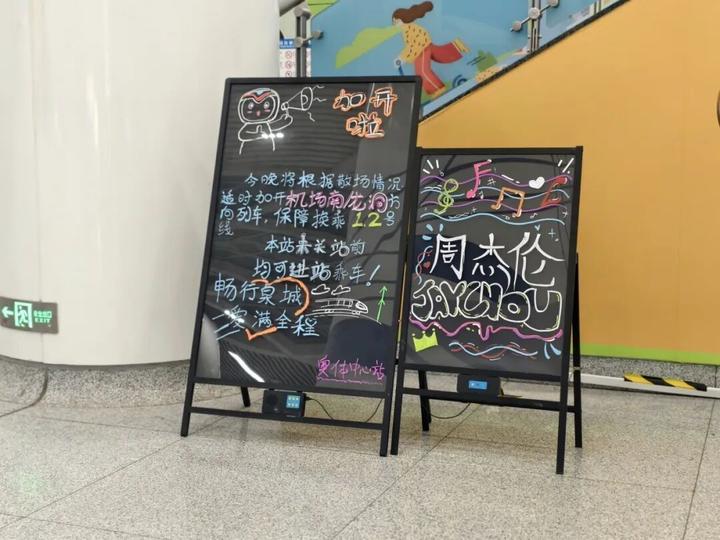 加开
啦
今晚将根据散场情况
适时加开机场南龙洞
方向列车，保障换乘1.2号
线
本站未关站前
均可进站乘车！
畅行泉城
一路满全程
奥体中心站
周杰伦
JAYCHOU
安全出口
EXIT